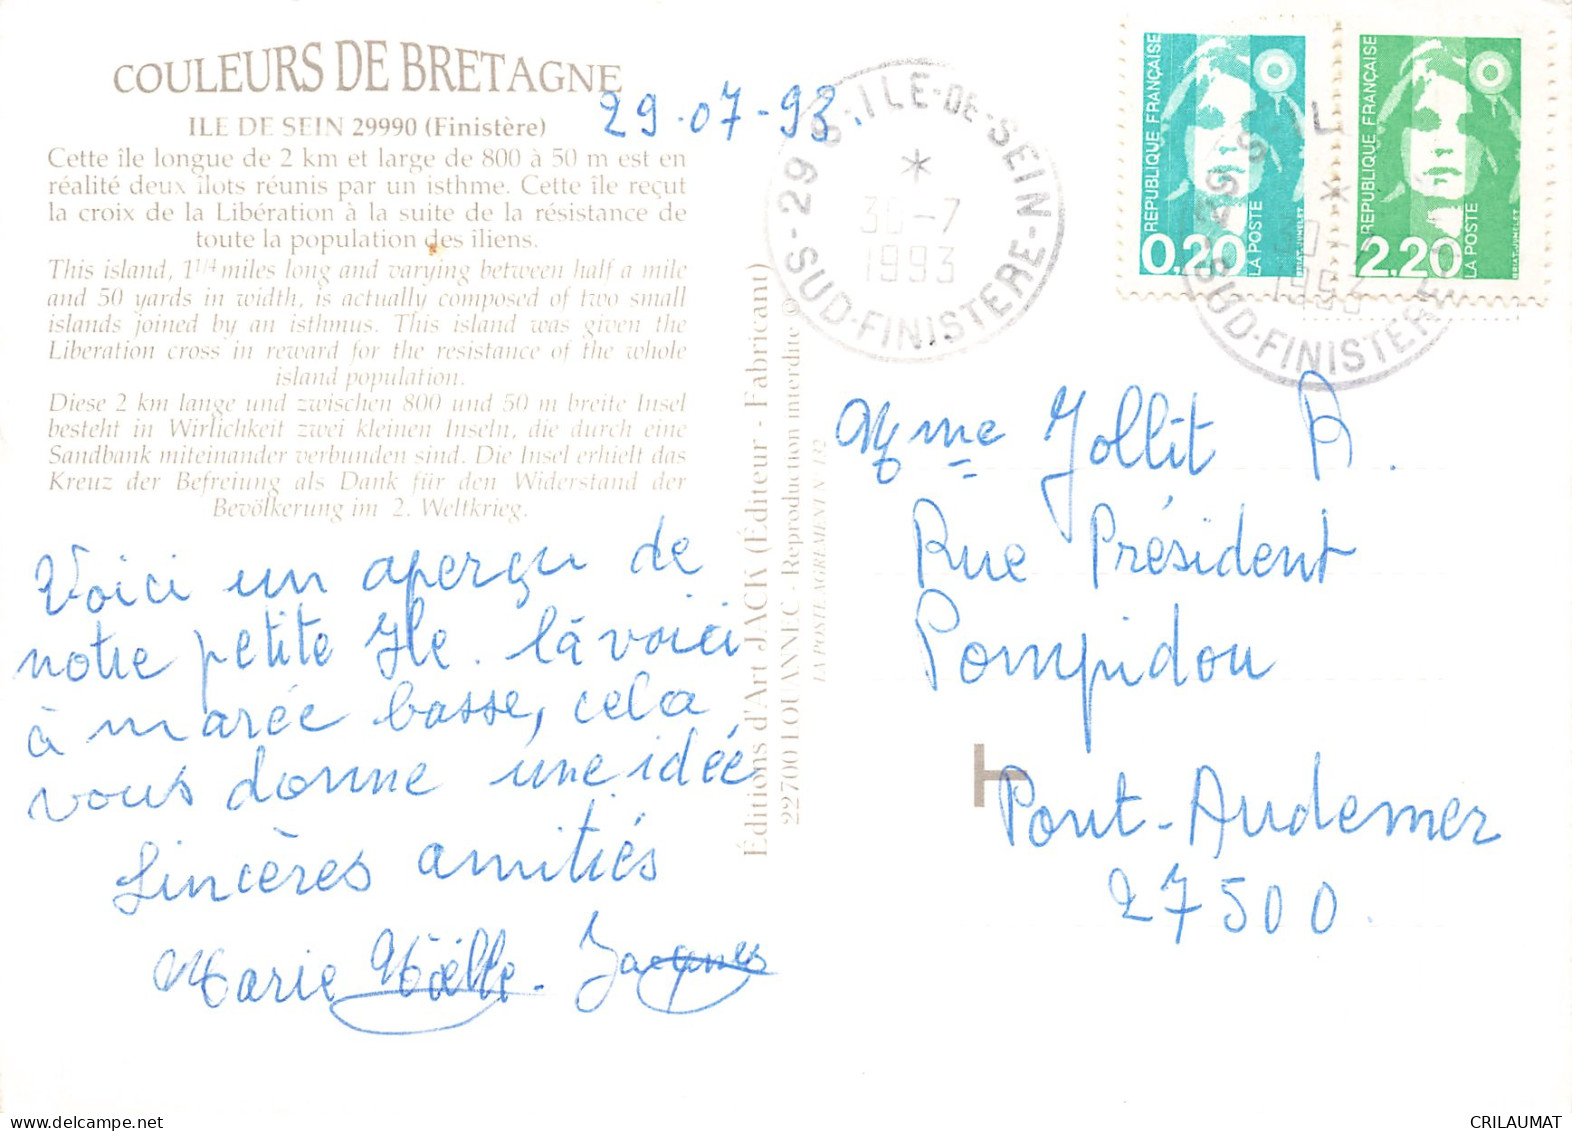 COULEURS DE BRETAGNE
ILE DE SEIN 29990 (Finistère)
Cette île longue de 2 km et large de 800 à 50 m est en
réalité deux îlots réunis par un isthme. Cette île reçut
la croix de la Libération à la suite de la résistance de
toute la population des îliens.
This island, 1 1/4 miles long and varying between half a mile
and 50 yards in width, is actually composed of two small
islands joined by an isthmus. This island was given the
Liberation cross in reward for the resistance of the whole
island population.
Diese 2 km lange und zwischen 800 und 50 m breite Insel
besteht in Wirlichkeit zwei kleinen Inseln, die durch eine
Sandbank miteinander verbunden sind. Die Insel erhielt das
Kreuz der Befreiung als Dank für den Widerstand der
Bevölkerung im 2. Weltkrieg.
29.07-93.
Voici un aperçu de
notre petite Ile. là voici
à marée basse, cela
vous donne une idée
Sincères amitiés
Marie Noëlle. Jacques
Éditions d'Art JACK (Éditeur - Fabricant)
22700 LOUANNEC - Reproduction interdite ©
LA POSTE AGREMENT N° 132
29 S.ILE-DE-SEIN
*
30-7
1993
SUD-FINISTERE-N
RÉPUBLIQUE FRANÇAISE
0,20
LA POSTE
BRIAT-JUMELET
RÉPUBLIQUE FRANÇAISE
2,20
LA POSTE
BRIAT-JUMELET
29 S IL
*
1993
SUD-FINISTERE
Mme Jollit A.
Rue Président
Pompidou
Pont-Audemer
27500.
CRILAUMAT